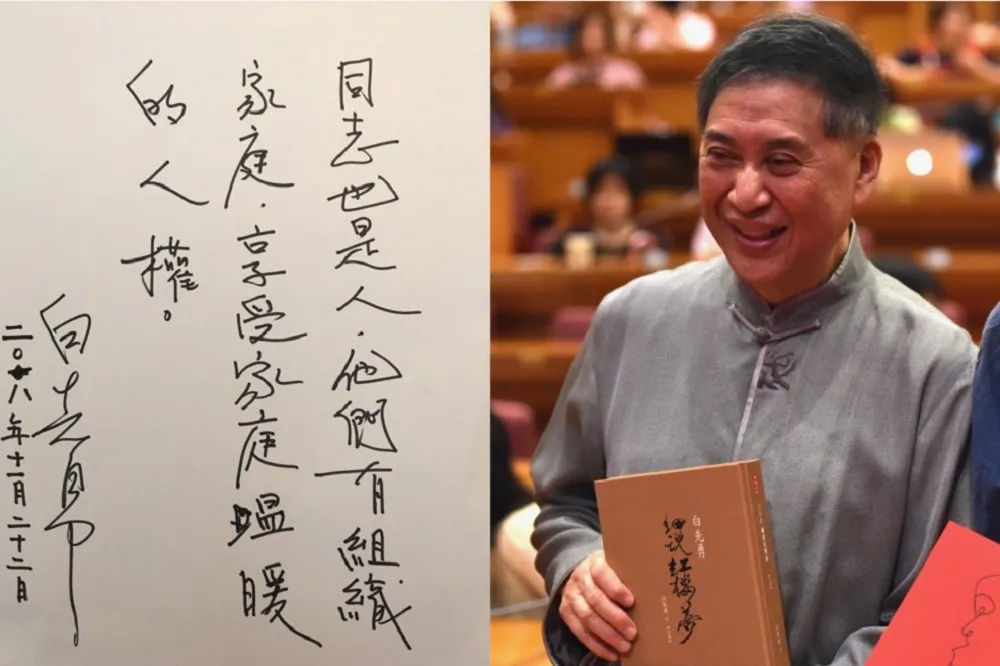 同志也是人.他們有組織
家庭.享受家庭溫暖
的人權。
白先勇
二〇一八年十一月二十二日
白先勇
細說紅樓夢